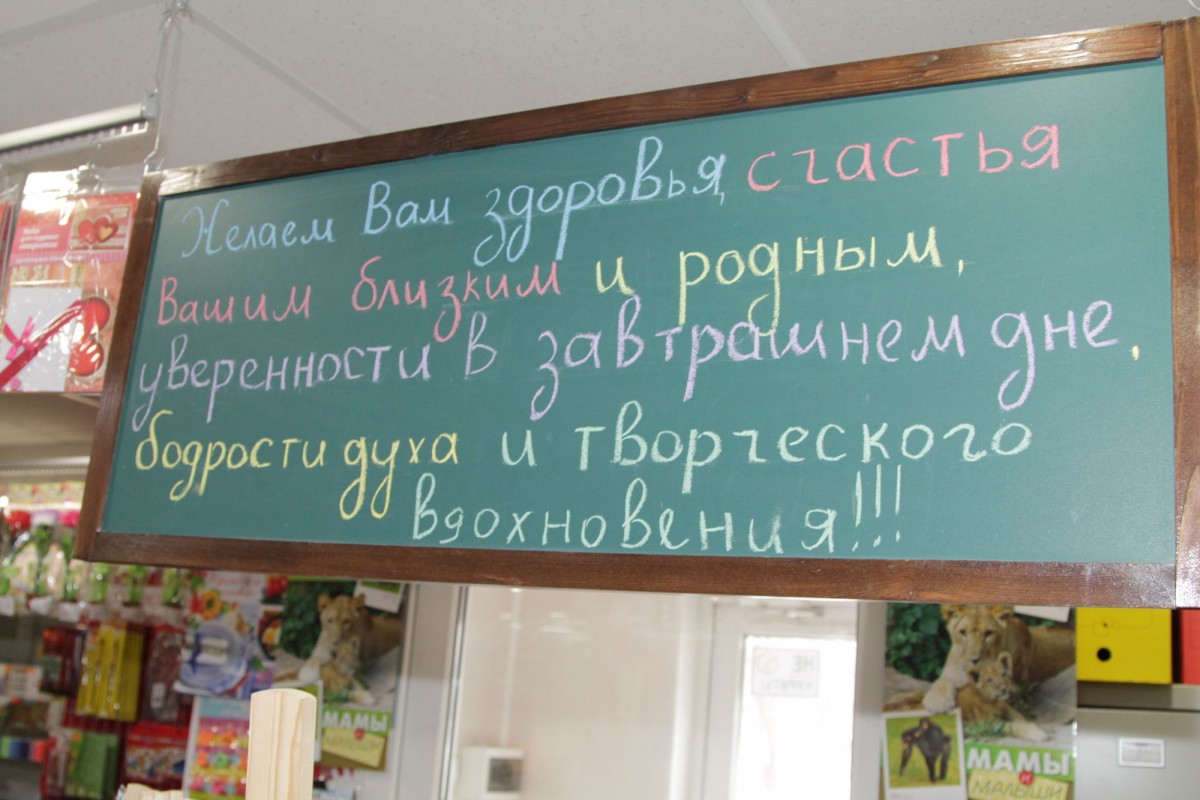 Желаем Вам здоровья, счастья
Вашим близким и родным,
уверенности в завтрашнем дне,
бодрости духа и творческого
вдохновения!!!
МАМЫ
и
МАЛЫШИ
НЕ
КУРИТЬ
МАМЫ
и
МАЛЫШИ